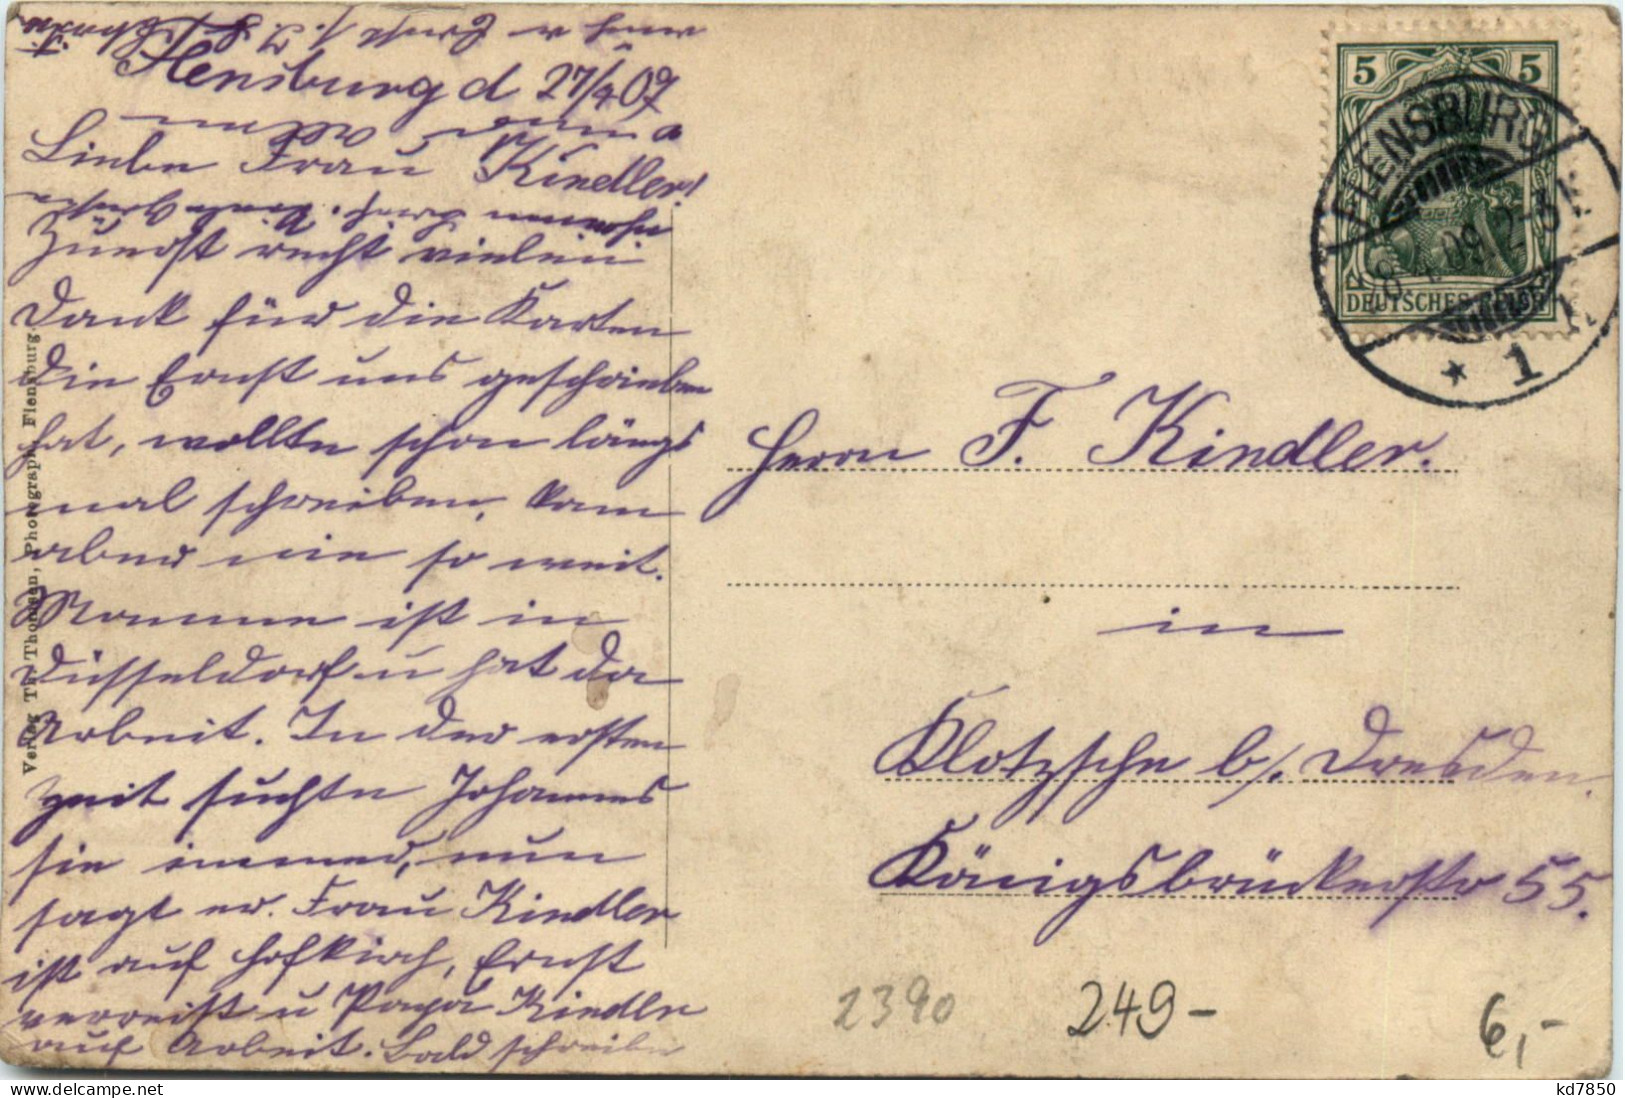 Flensburg d 27/4 07
Liebe Frau Kindler!
Zuerst recht vielen
Dank für die Karten
die Ernst uns geschrieben
hat, wollte schon längs
mal schreiben, kam
aber nie so weit.
Mamme ist in
Düsseldorf u hat da
Arbeit. In der ersten
Zeit suchte Johannes
sie immer, nun
sagt er. Frau Kindler
ist auf Hofkirch, Ernst
verreist u Papa Kindler
auf Arbeit. Bald schreibe
Verlag Th. Thomsen, Photograph, Flensburg.
5 5
DEUTSCHES REICH
FLENSBURG
* 1
Herrn F. Kindler.
in
Klotzsche b/. Dresden.
Königsbrückerstr 55.
2390
249-
6,-
kd7850